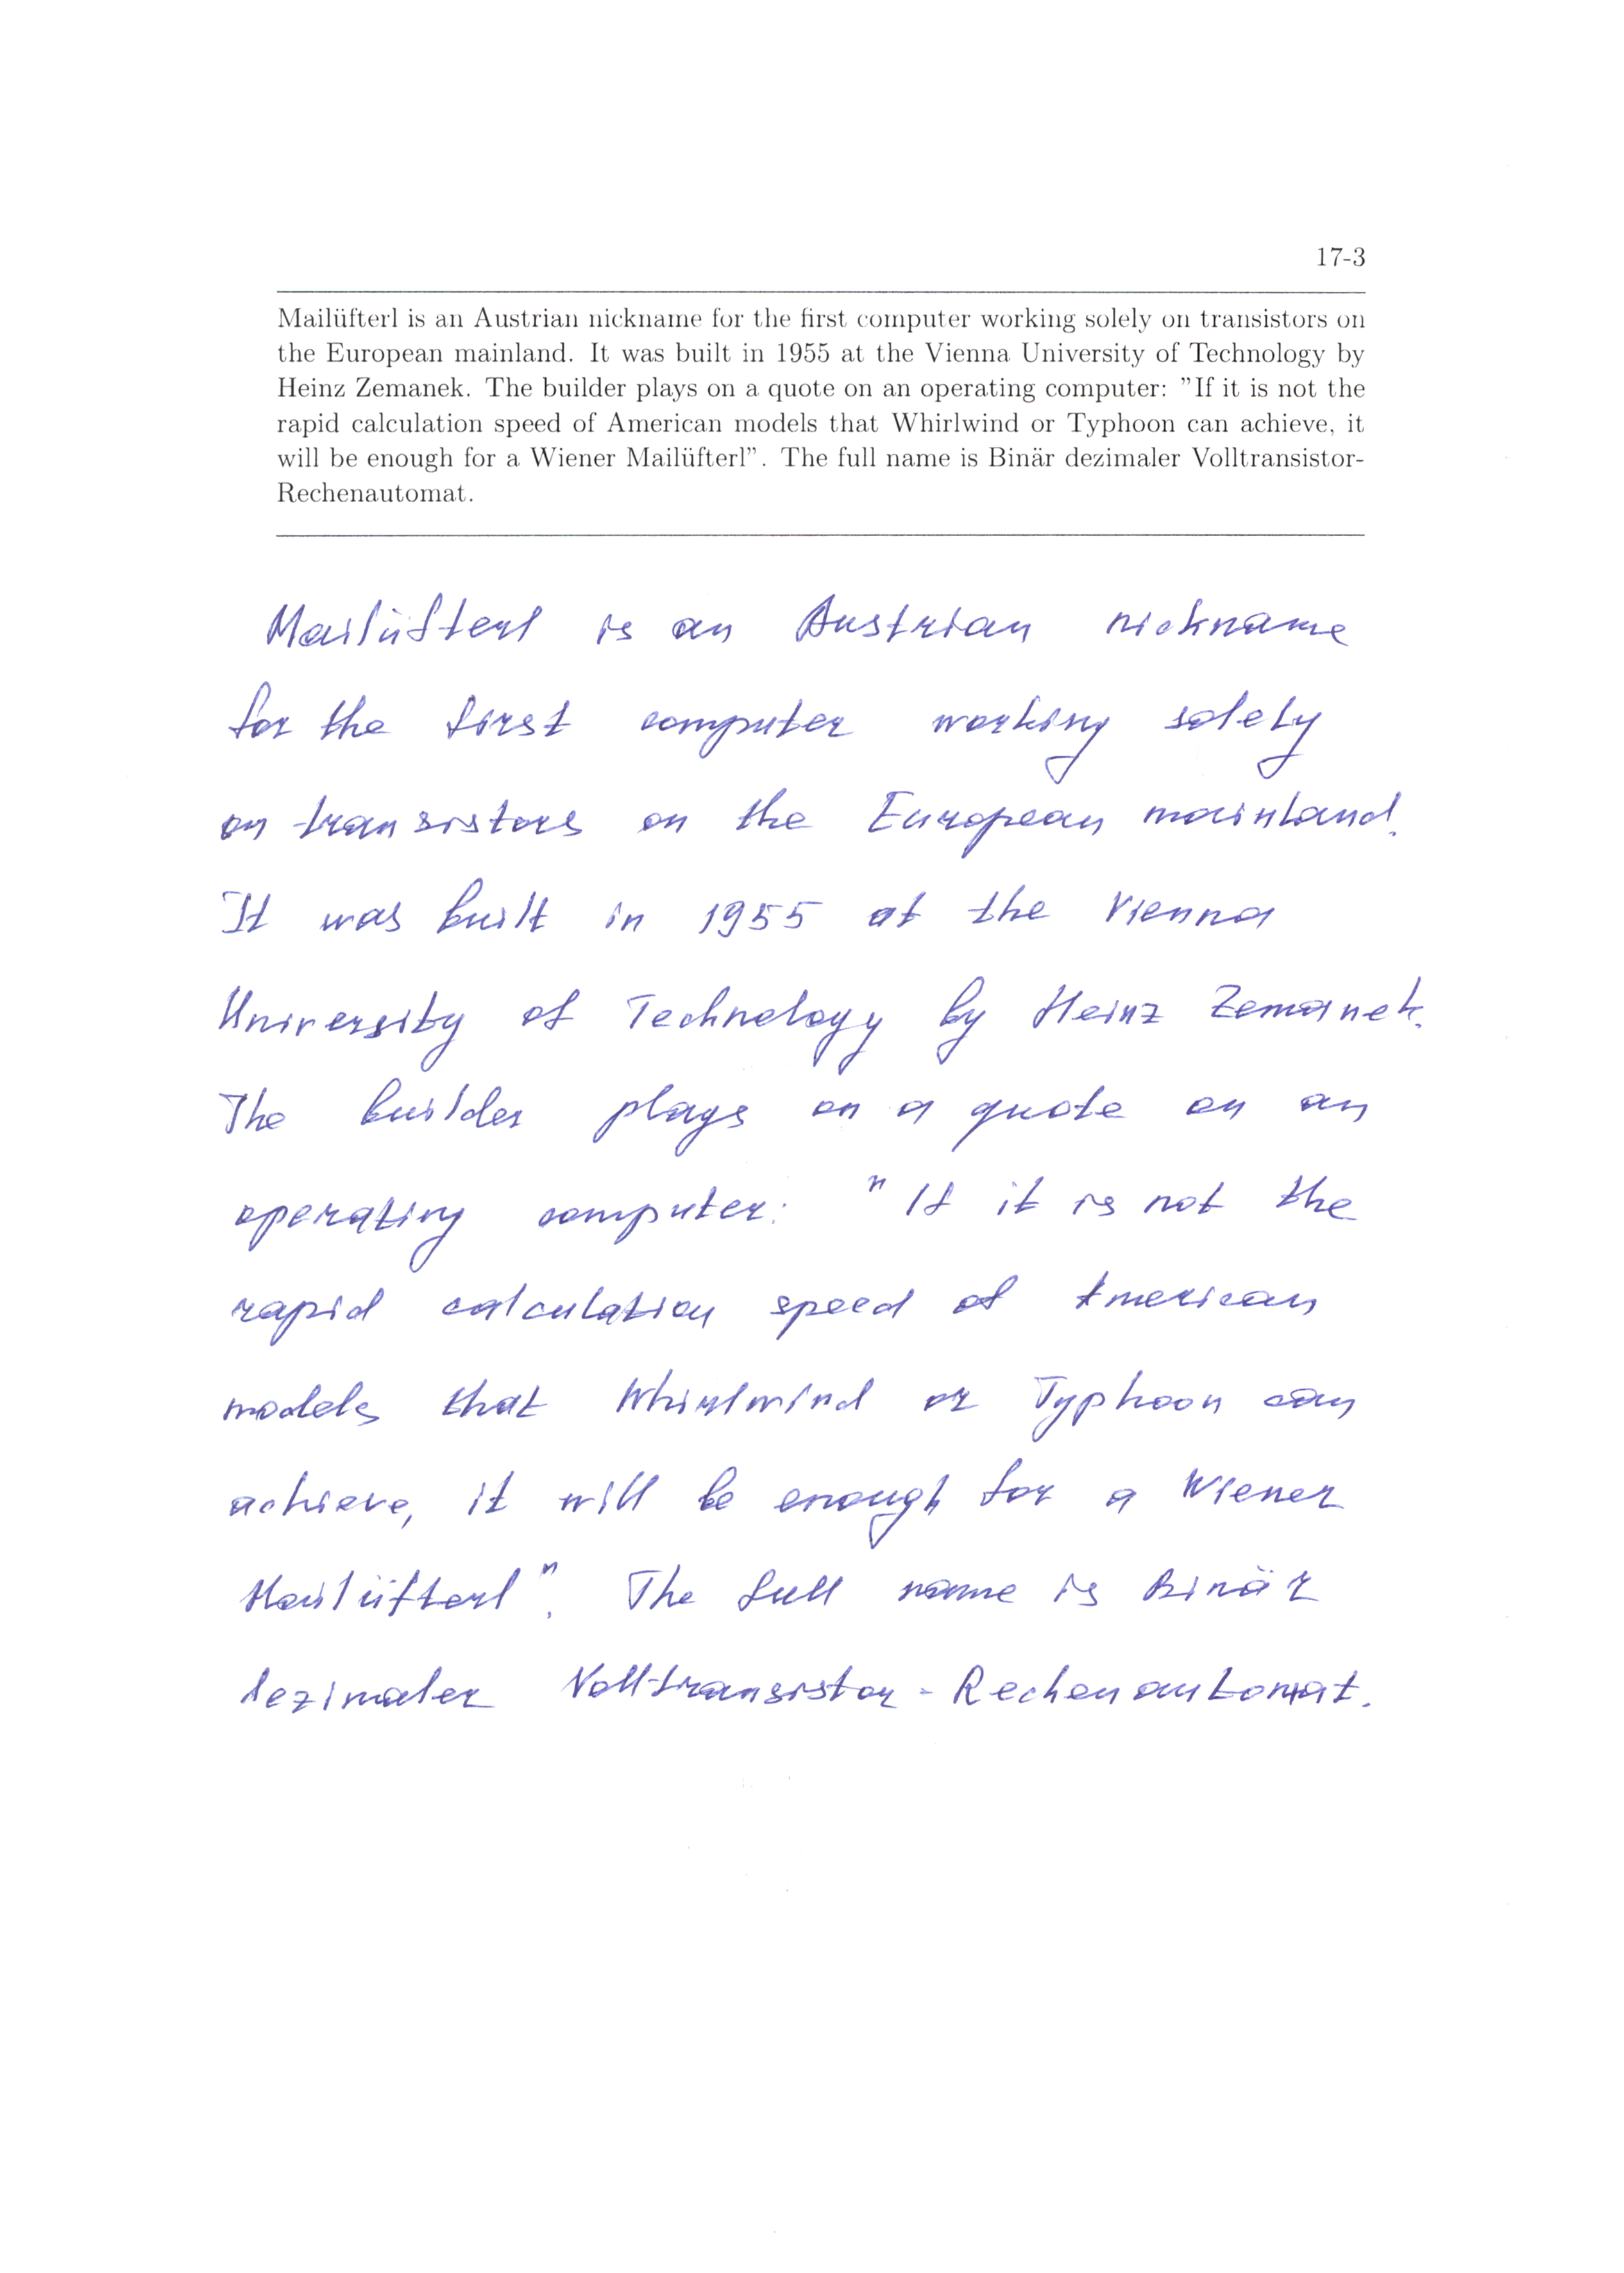 17-3
Mailüfterl is an Austrian nickname for the first computer working solely on transistors on
the European mainland. It was built in 1955 at the Vienna University of Technology by
Heinz Zemanek. The builder plays on a quote on an operating computer: ”If it is not the
rapid calculation speed of American models that Whirlwind or Typhoon can achieve, it
will be enough for a Wiener Mailüfterl”. The full name is Binär dezimaler Volltransistor-
Rechenautomat.
Mailüfterl is an Austrian nickname
for the first computer working solely
on transistors on the European mainland.
It was built in 1955 at the Vienna
University of Technology by Heinz Zemanek.
The builder plays on a quote on an
operating computer: "If it is not the
rapid calculation speed of American
models that Whirlwind or Typhoon can
achieve, it will be enough for a Wiener
Mailüfterl". The full name is Binär
dezimaler Volltransistor-Rechenautomat.